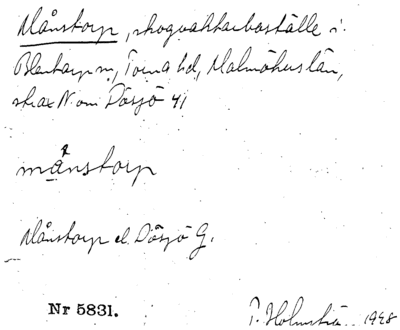 Månstorp, skogvaktarboställe i
Blentarp sn, Torna hd, Malmöhus län,
strax N om Dösjö 41
månstorp
Månstorp el. Dösjö G.
Nr 5831.
P. 1948